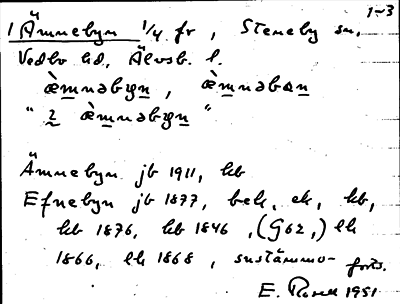 1-3
1 Ämnebyn 1/4 fr, Steneby sn,
Vedbo hd, Älvsb. l.
æ̀mnəbyn, æ̀mnəbɑn
" 2 æ̀mnəbyn "
Ämnebyn jb 1911, kb
Efnebyn jb 1877, bek, ek, kb,
kb 1876, kb 1846, (G62,) lk
1866, lk 1868, sustämmo-
forts.
E. 1951